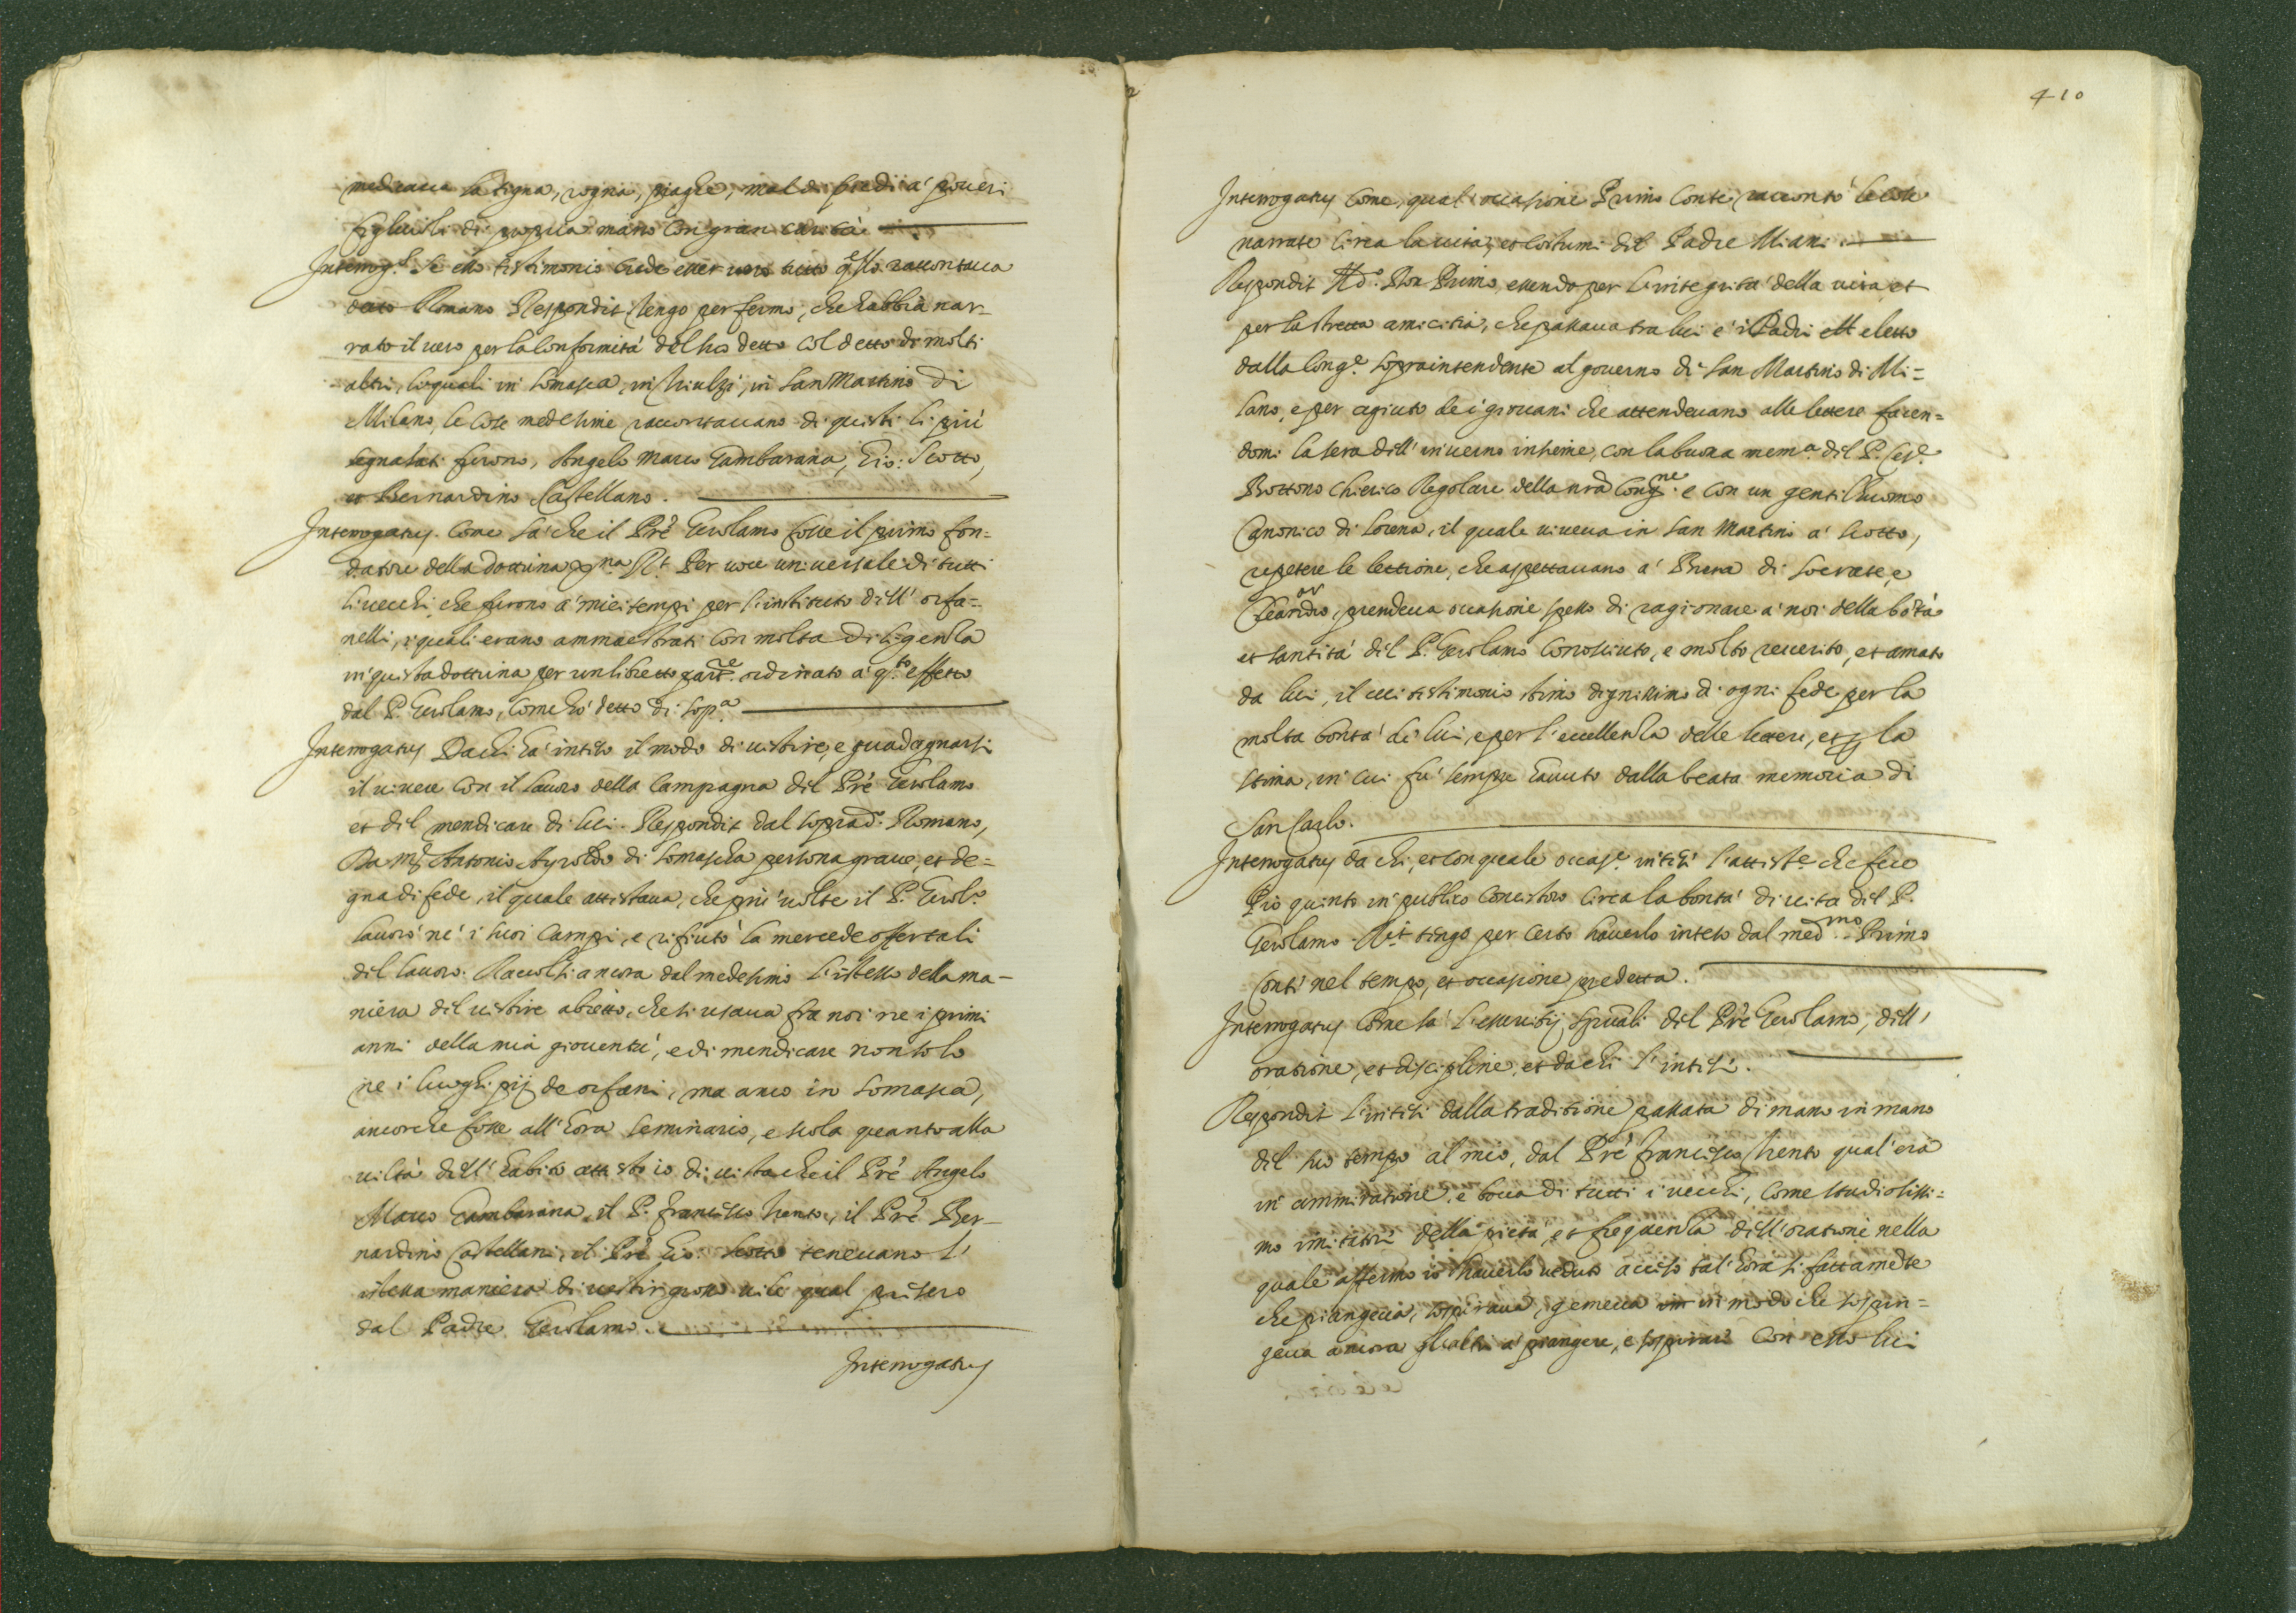 medicaua la tigna, rogna, piaghe, mal di piedi a' poueri
figliuoli di propria mano con gran carità.
Interrog.s Se esso testimonio crede esser vero tutto q.sto raccontaua
detto Romano Respondit Tengo per fermo, che habbia nar-
rato il uero per la conformità del suo detto col detto di molti
altri, li quali in Somasca, in Triulzi, in San Martino di
Milano, le cose medesime raccontauano di questi li più
segnalati furono, Angelo Marco Gambarana, Gio: Scotto,
et Bernardino Castellano.
Interrogatus. Come sà che il Prê Gerolamo fosse il primo fon=
datore della dottrina xp̃na R.t Per uoce uniuersale di tutti
li uecchi che furono a' miei tempi per l'instituto dell' orfa=
nelli, i quali erano ammaestrati con molta diligenza
in questa dottrina per un libretto part.re ordinato a' q.to effetto
dal P. Gerolamo, come hò detto di sop.a
Interrogatus Da chi hà inteso il modo di uestire, e guadagnarsi
il uiuere con il lauoro della campagna del Prê Gerolamo
et del mendicare di lui. Respondit dal soprad.o Romano,
Da m.r Antonio Ayroldo di Somascha persona graue, et de=
gna di fede, il quale attestaua, che più uolte il P. Gerol.o
lauorò ne' i suoi campi, e rifiutò la mercede offertali
del lauoro. Raccolsi ancora dal medesimo l'istesso della ma-
niera del uestire abietto, che si usaua fra noi ne i primi
anni della mia giouentù, e di mendicare non solo
ne i luoghi pij de orfani, ma anco in Somasca,
ancorche fosse all' hora seminario, e scola quanto alla
uiltà dell' habito attesto io di uista che il Prê Angelo
Marco Gambarana, il P. Francesco Trento, il Prê Ber-
nardino Castellani, il Prê Gio: Scotto teneuano l'
istessa maniera di uestir grosso uile qual presero
dal Padre Gerolamo.
Interrogatus
410
Interrogatus come, qual occasione Primo Conte raccontò le cose
narrate circa la uita, et costumi del Padre Miani
Respondit Il d.o Don Primo essendo per l'integrità della uita et
per la stretta amicitia, che passaua tra lui e' i Padri ell eletto
dalla Cong.e sopraintendente al gouerno di San Martino di Mi=
lano, e per agiuto de i giouani che attendeuano alle lettere facen=
domi la sera dell' inuerno insieme, con la buona mem.a del P. Ces.e
Bottono Chierico Regolare della nrã Cong.ne e con un gentilhuomo
Canonico di Lorena, il quale uiueua in San Martino a' scotto,
repetere le lettione, che aspettauano a' Brera di Socrate, e
prendeua occasione spesso di ragionare a' noi della bõtà
et santità del P. Gerolamo conosciuto, e molto reuerito, et amato
da lui, il cui testimonio stimo dignissimo di ogni fede per la
molta bontà di lui, e per l'eccellenza delle lettere, et p la
stima, in cui fù sempre hauuto dalla beata memoria di
San Carlo.
Interrogatus da chi, et con quale occas.e intesi l'attest.e che fece
Pio quinto in publico concistoro circa la bontà di uita del P.
Gerolamo. R.it tengo per certo hauerlo inteso dal med.mo Primo
Conti nel tempo, et occasione predetta.
Interrogatus Come sà l'essercitij spũali del Prê Gerolamo, dell'
oratione, et discipline, et da chi l'intesi.
Respondit l'intesi dalla traditione passata di mano in mano
del suo tempo al mio, dal Prê Francesco Trento qual' era
in ammiratione, e bocca di tutti i uecchi, come studiosissi=
mo imitatore della pietà, et frequenza dell' oratione nella
quale affermo io hauerlo ueduto acceso tal' hora si fattamẽte
che piangeua, sospiraua, gemeua in modo che sospin=
geua ancora gli altri a' piangere, e sospirare con esso lui